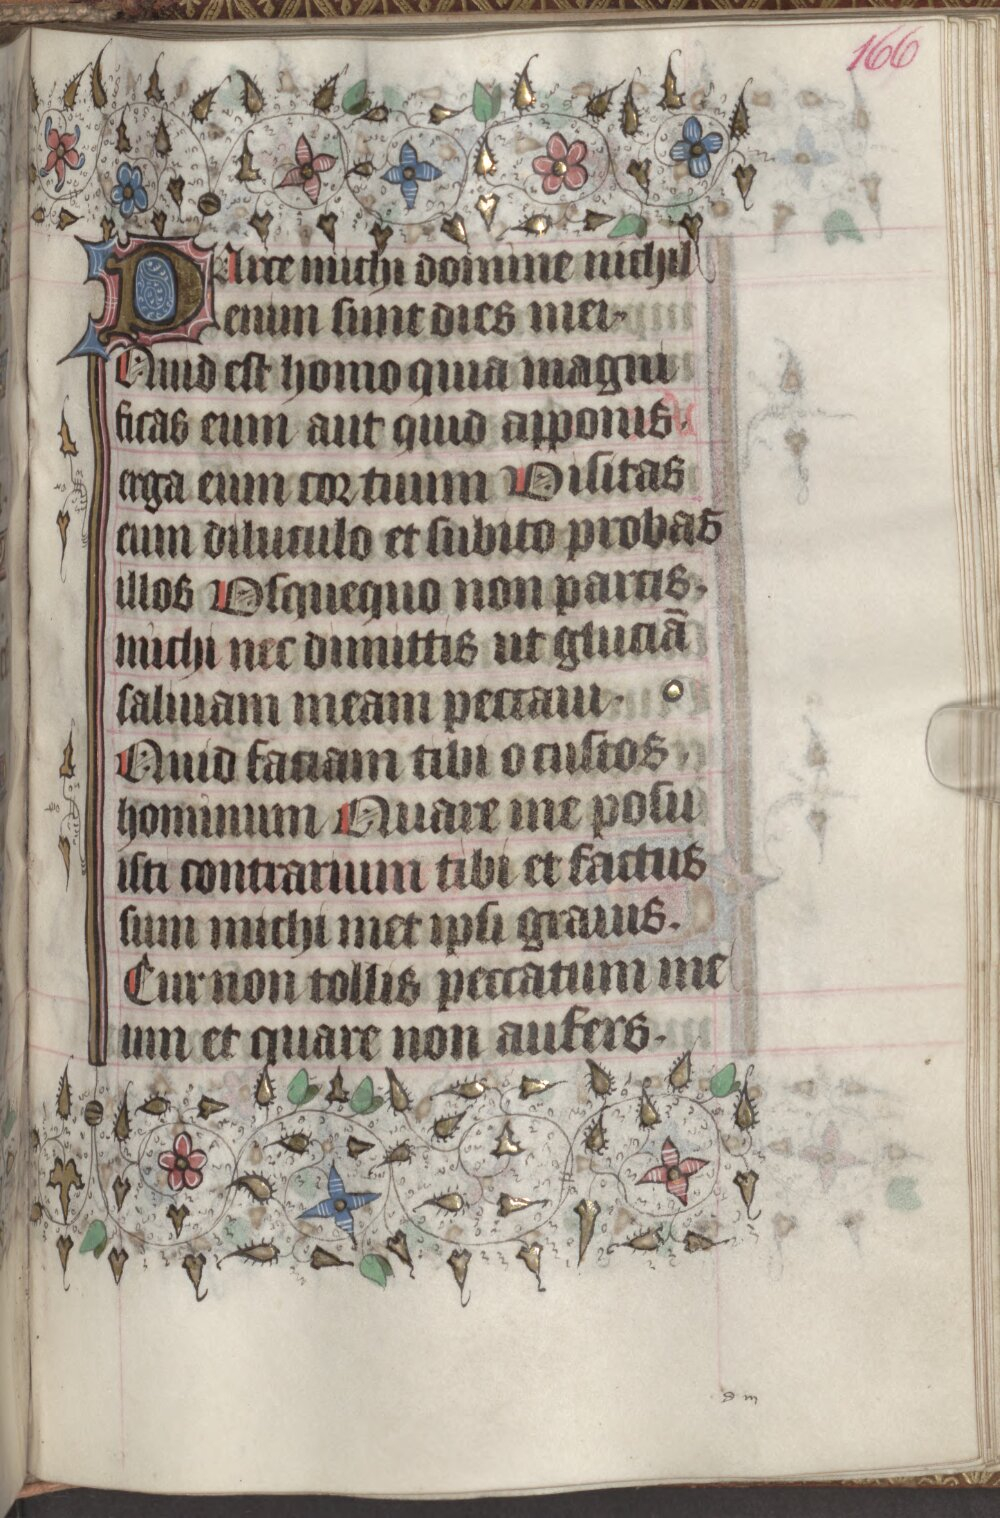 166
PArce michi domine nichil
enim sunt dies mei.
Quid est homo quia magni
ficas eum aut quid apponis.
erga eum cor tuum Visitas
eum diluculo et subito probas
illos Usquequo non parcis,
michi nec dimittis ut gluciā
saliuam meam peccaui.
Quid faciam tibi o custos
hominum Quare me posu
isti contrarium tibi et factus
sum michi met ipsi grauis.
Cur non tollis peccatum me
um et quare non aufers.